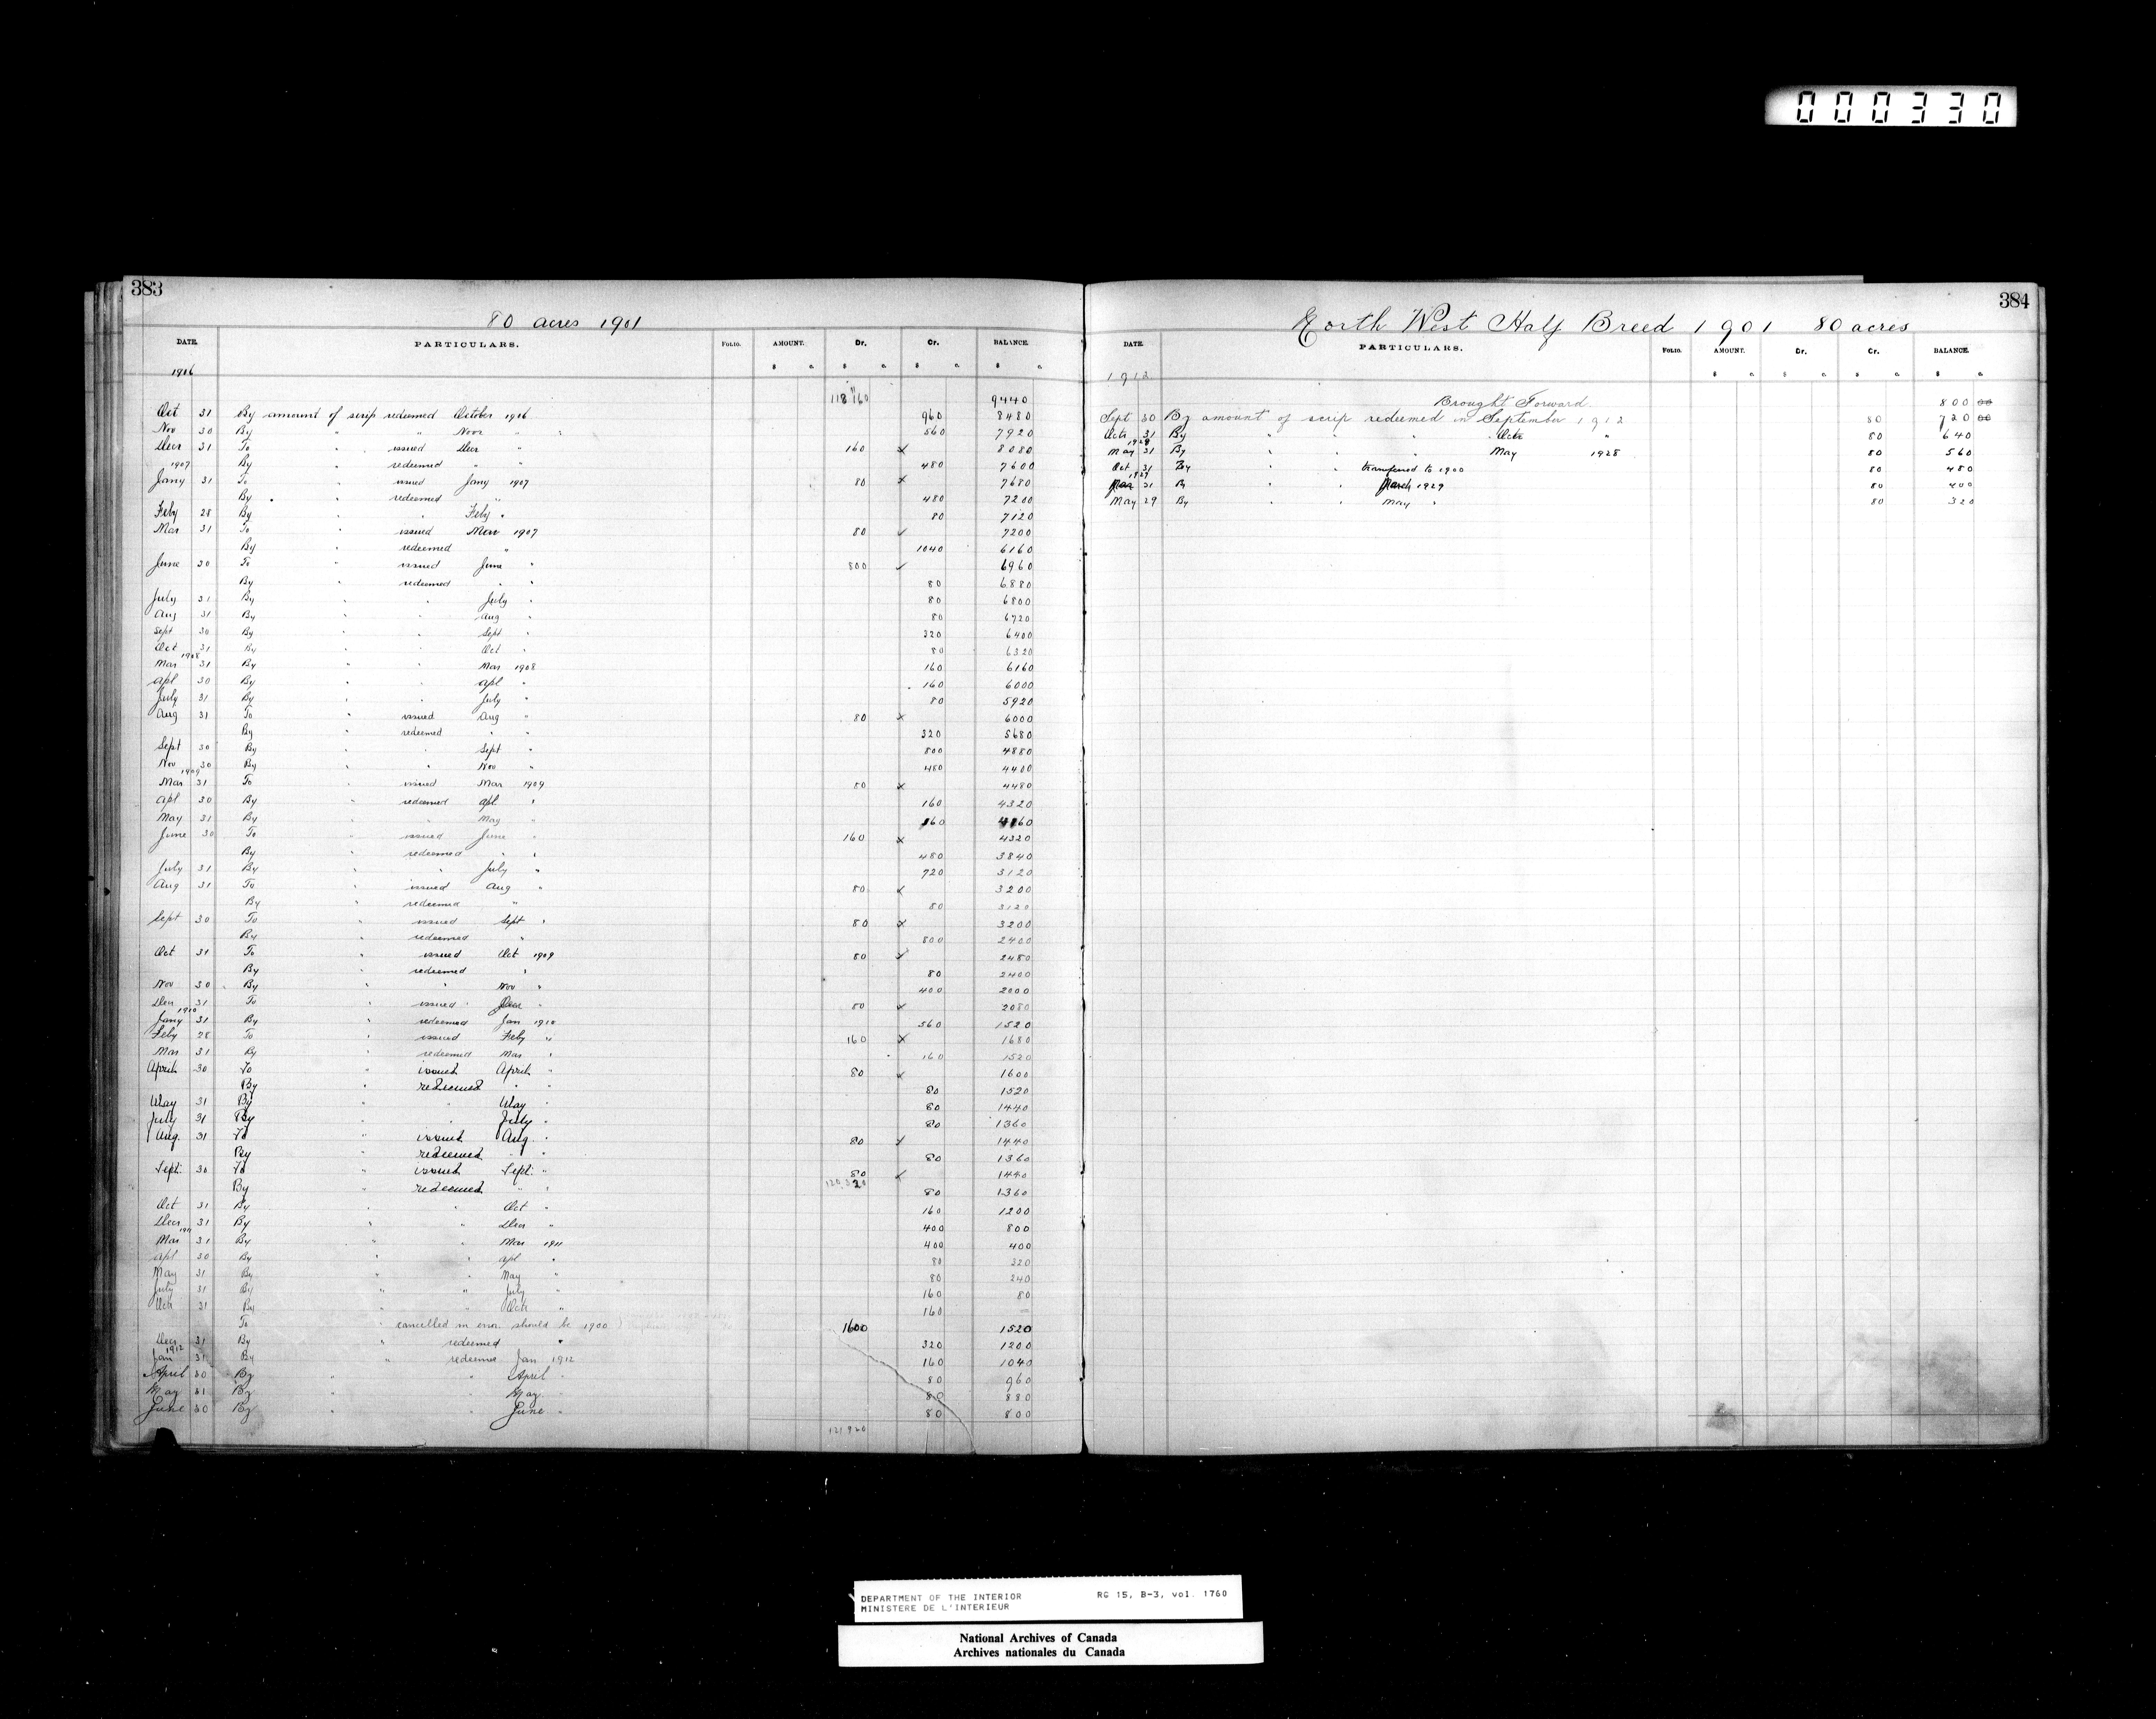 000330
383
80 acres 1901
DATE. PARTICULARS. FOLIO. AMOUNT. Dr. Cr. BALANCE.
$ c. $ c. $ c. $ c.
1906
118 160 9440
Oct 31 By amount of scrip redeemed October 1906 960 8480
Nov 30 By " " Novr " " 560 7920
Decr 31 To " issued Decr " 160 x 8080
1907 By redeemed " " 480 7600
Jany 31 To " issued Jany 1907 80 x 7680
By " redeemed " 480 7200
Feby 28 By " " Feby " 80 7120
Mar 31 To " issued Mar 1907 80 ✓ 7200
By " redeemed " 1040 6160
June 30 To " issued June " 800 ✓ 6960
By " redeemed " " 80 6880
July 31 By " " July " 80 6800
Aug 31 By " " Aug " 80 6720
Sept 30 By " " Sept " 320 6400
Oct 31 By " " Oct " 80 6320
1908
Mar 31 By " " Mar 1908 160 6160
Apl 30 By " " Apl " 160 6000
July 31 By " " July " 80 5920
Aug 31 To " issued Aug " 80 x 6000
By redeemed " " 320 5680
Sept 30 By " " Sept " 800 4880
Nov 30 By " " Nov " 480 4400
1909
Mar 31 To issued Mar 1909 80 x 4480
Apl 30 By " redeemed Apl " 160 4320
May 31 By " " May " 160 4160
June 30 To " issued June " 160 x 4320
By redeemed " " 480 3840
July 31 By " " July " 720 3120
Aug 31 To " issued Aug " 80 x 3200
By " redeemed " 80 3120
Sept 30 To " issued Sept " 80 x 3200
By " redeemed " 800 2400
Oct 31 To " issued Oct 1909 80 ✓ 2480
By " redeemed " 80 2400
Nov 30 By " " Nov " 400 2000
Decr 31 To " issued Decr " 80 x 2080
1910
Jany 31 By " redeemed Jan 1910 560 1520
Feby 28 To " issued Feby " 160 x 1680
Mar 31 By " redeemed Mar " 160 1520
April 30 To " issued April " 80 x 1600
By " redeemed " " 80 1520
May 31 By " " May " 80 1440
July 31 By " " July " 80 1360
Aug. 31 To " issued Aug. " 80 ✓ 1440
By redeemed " " 80 1360
Sept: 30 To " issued Sept: " 80 x 1440
By " redeemed " " 120 320 80 1360
Oct 31 By " " Oct " 160 1200
Decr 31 By " " Decr " 400 800
1911
Mar 31 By " " Mar 1911 400 400
Apl 30 By " " Apl " 80 320
May 31 By " " May " 80 240
July 31 By " " July " 160 80
Oct 31 By " " Oct " 160 —
To " cancelled in error should be 1900) 1600 1520
Decr 31 By " redeemed " 320 1200
1912
Jan 31 By " redeemed Jan 1912 160 1040
April 30 By " " April " 80 960
May 31 By " " May " 80 880
June 30 By " " June " 80 800
121 920
384
North West Half Breed 1901 80 acres
DATE. PARTICULARS. FOLIO. AMOUNT. Dr. Cr. BALANCE.
$ c. $ c. $ c. $ c.
1912
Brought Forward 800 00
Sept 30 By amount of scrip redeemed in September 1912 80 720 00
Octr 31 By " " " Octr " 80 640
1928
May 31 By " " " May 1928 80 560
Oct 31 By " " transferred to 1900 80 480
1929
Mar 31 By " " March 1929 80 400
May 29 By " " May " 80 320
DEPARTMENT OF THE INTERIOR RG 15, B-3, vol. 1760
MINISTERE DE L'INTERIEUR
National Archives of Canada
Archives nationales du Canada